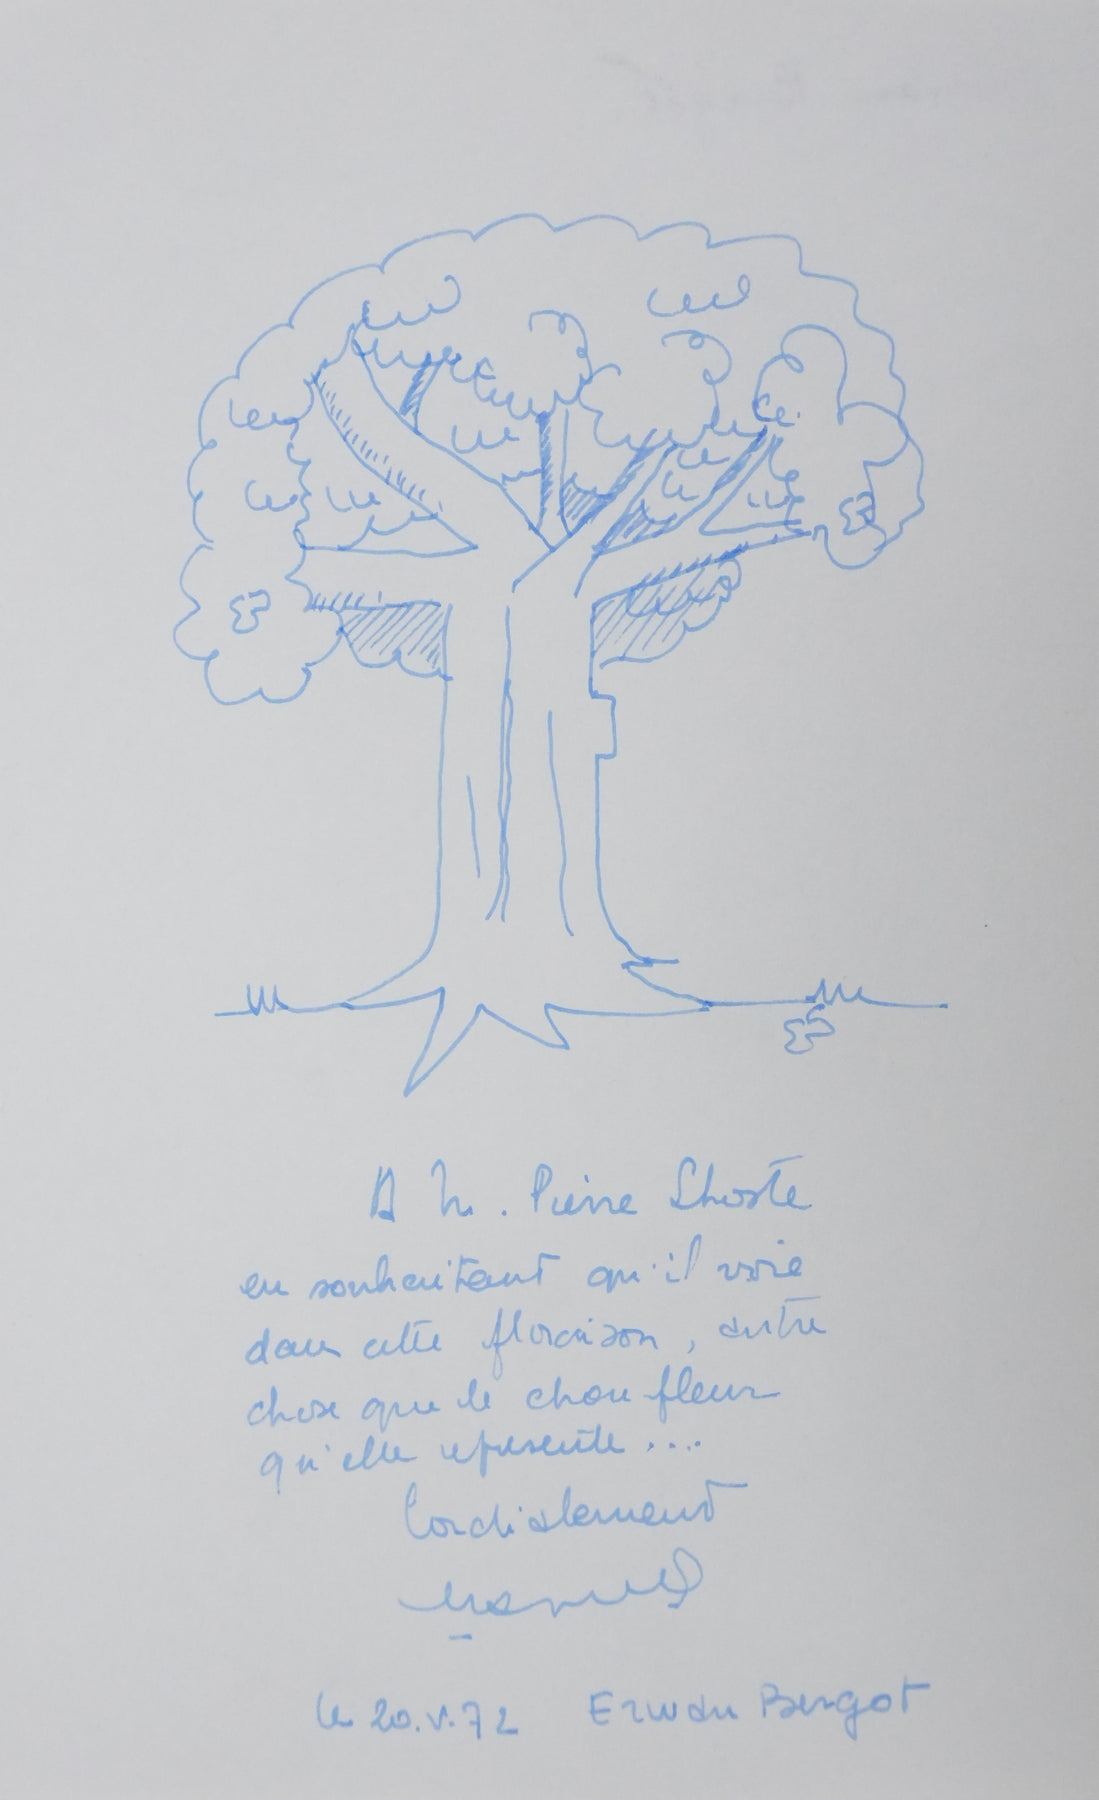 A M. Pierre Lhoste
en souhaitant qu'il voie
dans cette floraison, autre
chose que le chou fleur
qu'elle représente....
Cordialement
le 20.V.72 Erwan Bergot